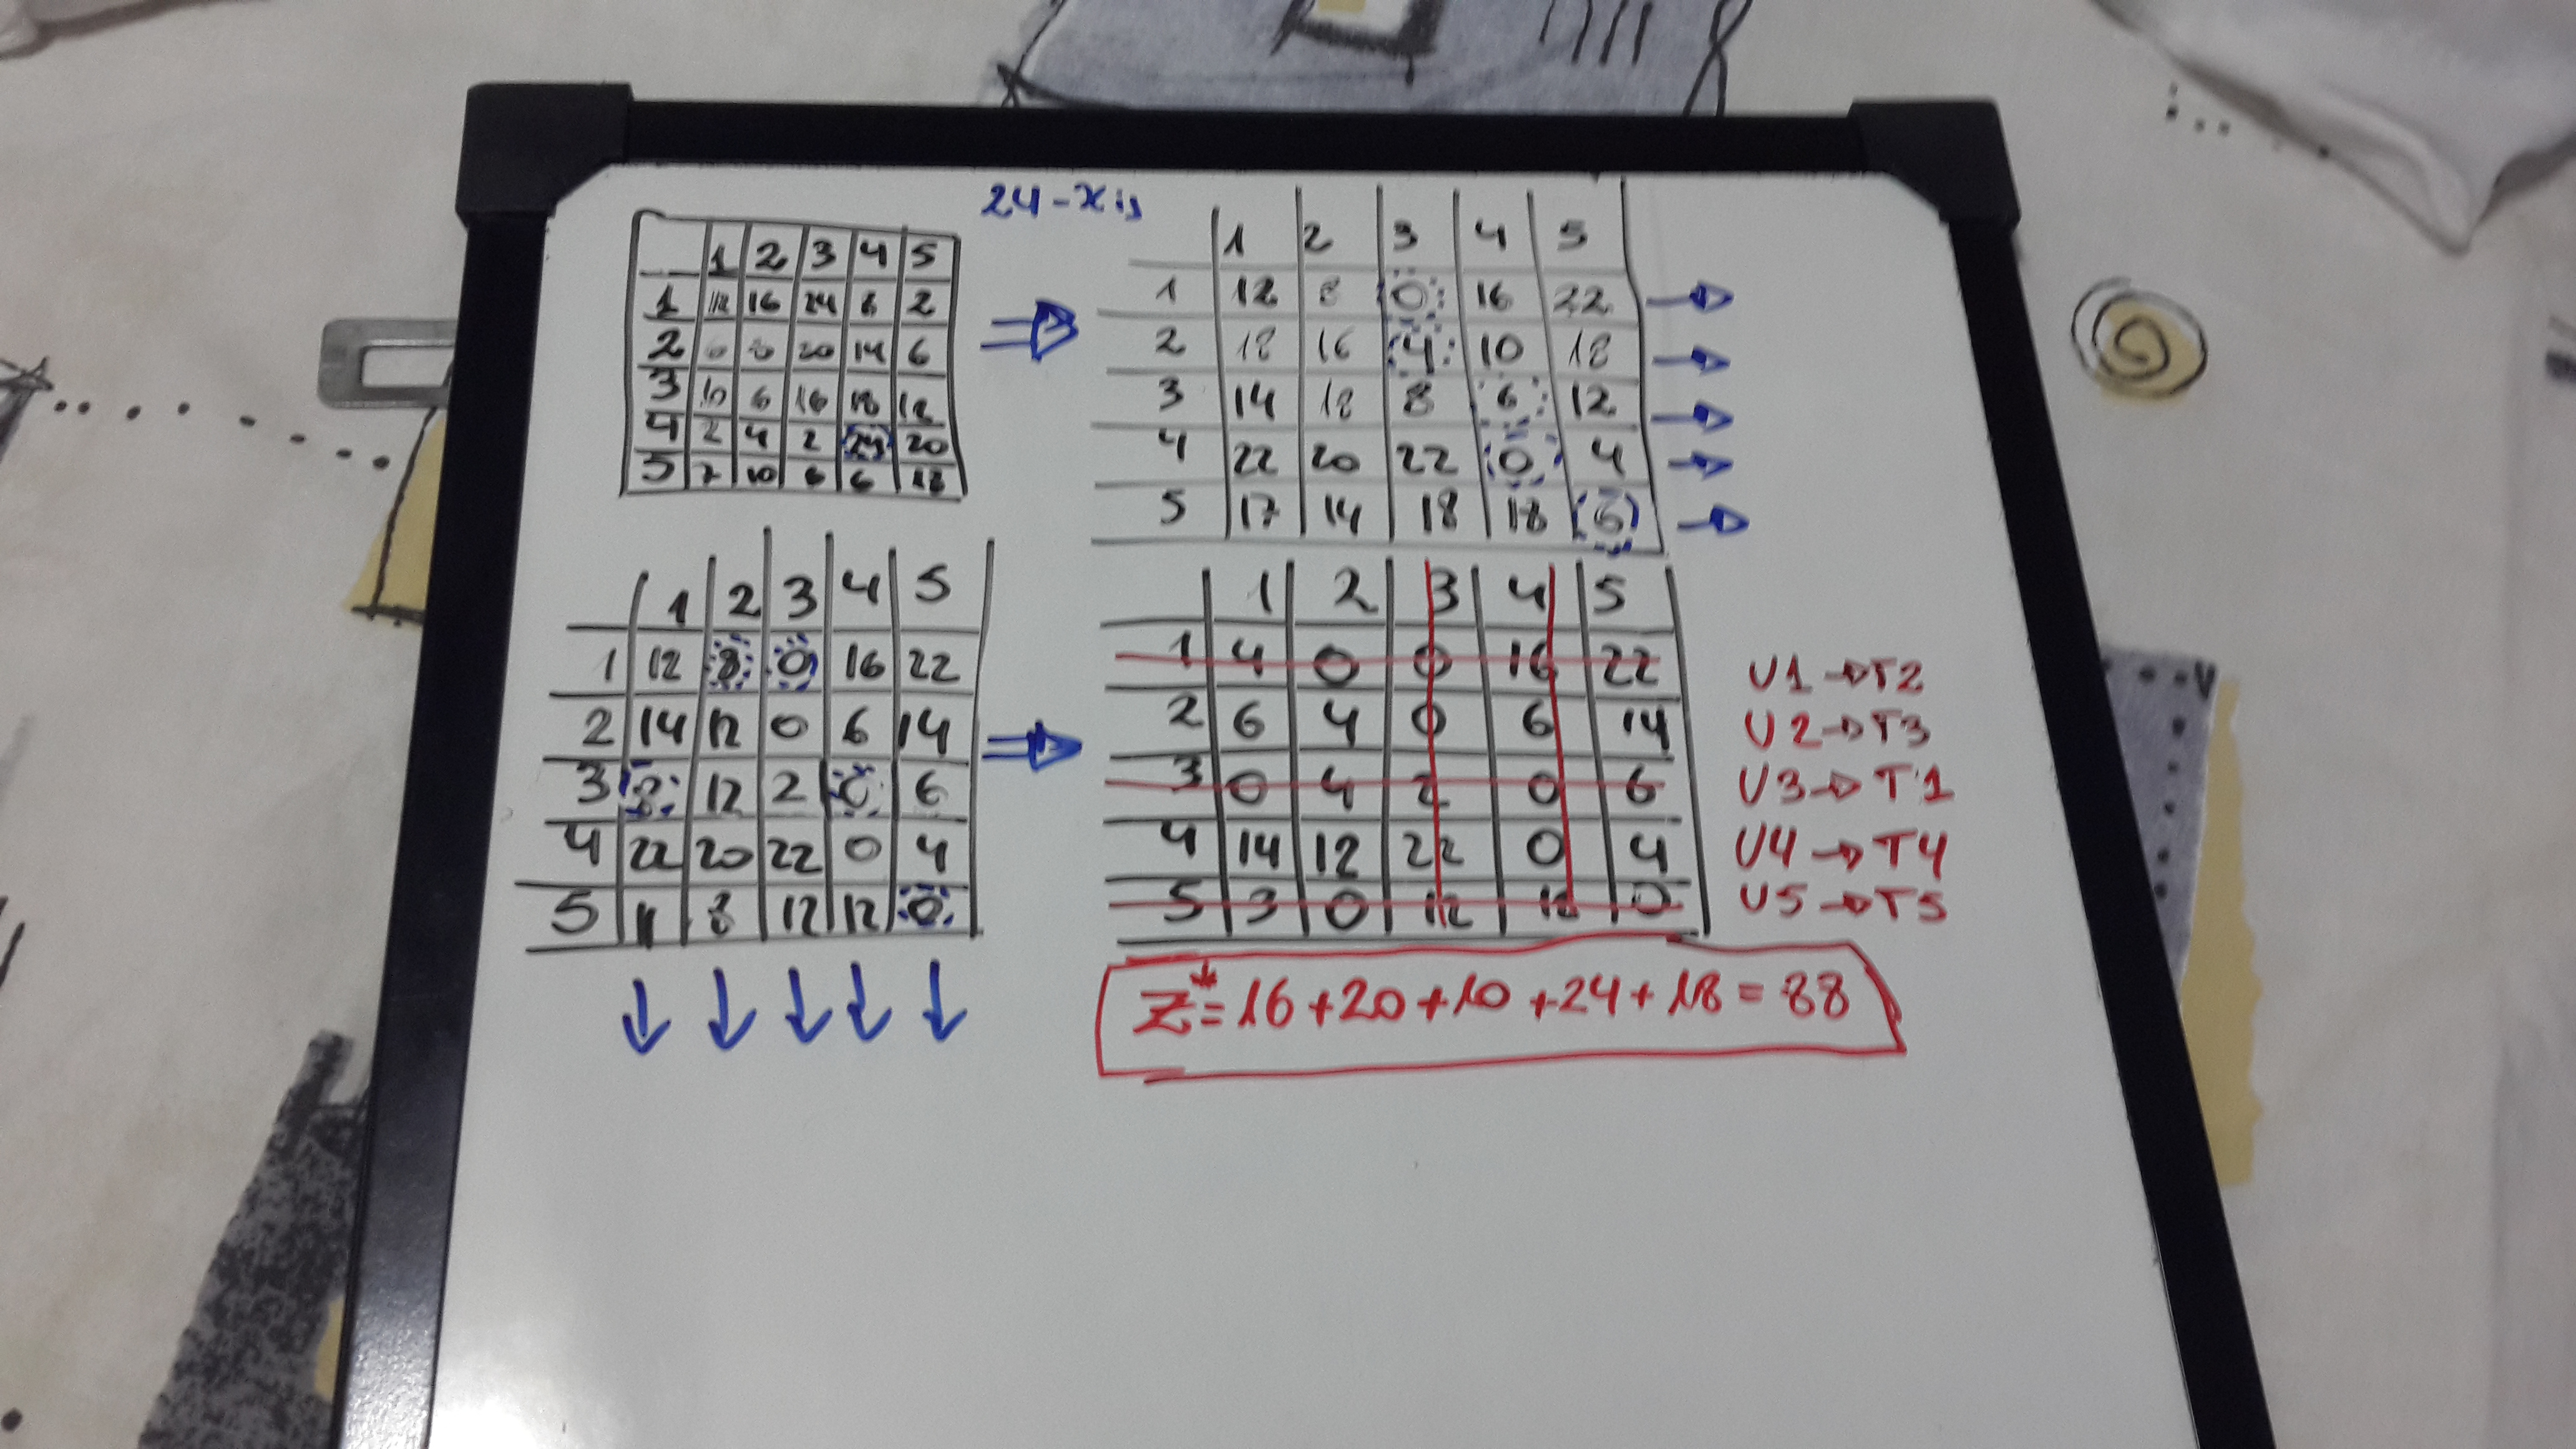 24-xij
1 2 3 4 5
1 12 16 24 8 2
2 6 8 20 14 6
3 10 6 16 18 12
4 2 4 2 24 20
5 7 10 6 6 18
1 2 3 4 5
1 12 8 0 16 22
2 18 16 4 10 18
3 14 18 8 6 12
4 22 20 22 0 4
5 17 14 18 18 6
1 2 3 4 5
1 12 8 0 16 22
2 14 12 0 6 14
3 8 12 2 0 6
4 22 20 22 0 4
5 11 8 12 12 0
1 2 3 4 5
1 4 0 0 16 22
2 6 4 0 6 14
3 0 4 2 0 6
4 14 12 22 0 4
5 3 0 12 12 0
U1 → T2
U2 → T3
U3 → T1
U4 → T4
U5 → T5
Z* = 16+20+10+24+18 = 88